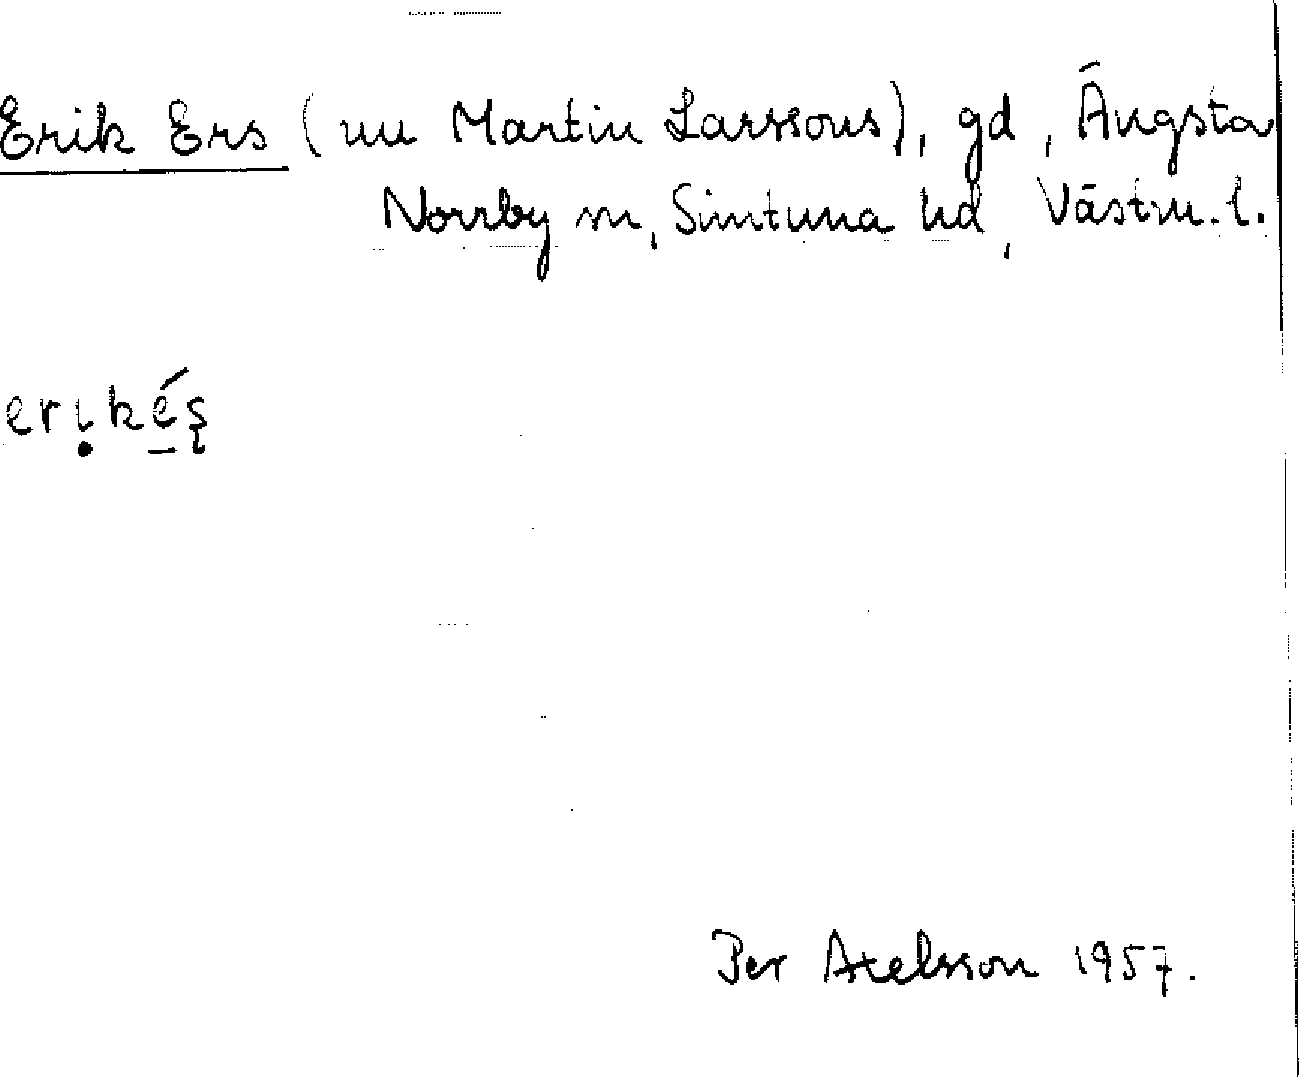 Erik Ers (nu Martin Larssons), gd, Ängsta
Norrby sn, Simtuna hd, Västm. l.
erikés
Per Axelsson 1957.